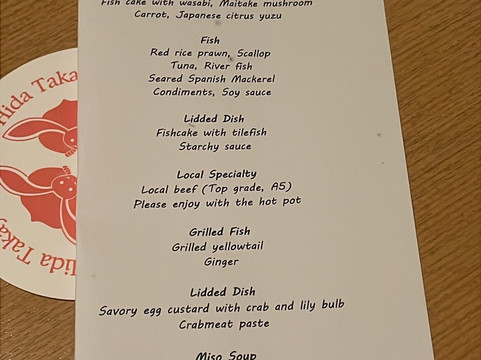 Fish cake with wasabi, Maitake mushroom
Carrot, Japanese citrus yuzu
Fish
Red rice prawn, Scallop
Tuna, River fish
Seared Spanish Mackerel
Condiments, Soy sauce
Lidded Dish
Fishcake with tilefish
Starchy sauce
Local Specialty
Local beef (Top grade, A5)
Please enjoy with the hot pot
Grilled Fish
Grilled yellowtail
Ginger
Lidded Dish
Savory egg custard with crab and lily bulb
Crabmeat paste
Miso Soup
Hida Taka
Hida Taka